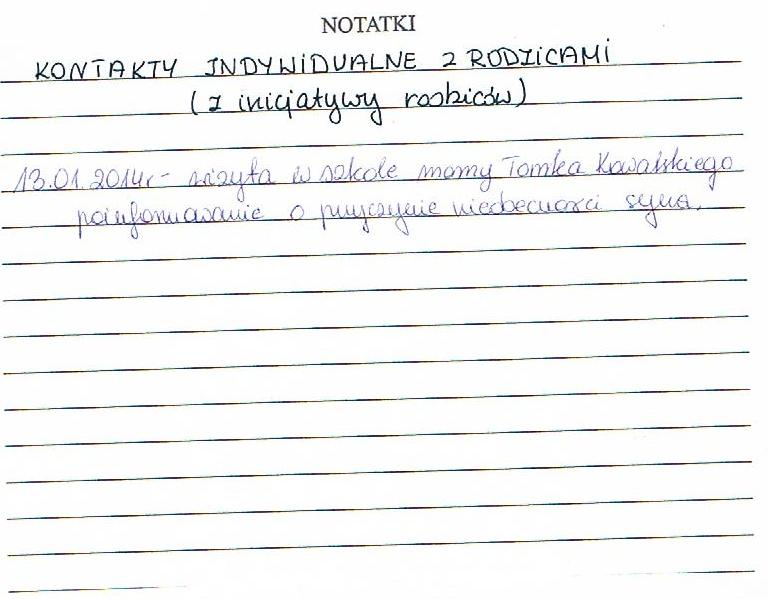 NOTATKI
KONTAKTY INDYWIDUALNE Z RODZICAMI
(z inicjatywy rodziców)
13.01.2014r.- wizyta w szkole mamy Tomka Kowalskiego
poinformowanie o przyczynie nieobecności syna.